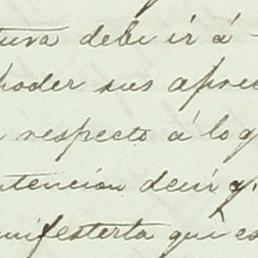 tura debe ir á
poder sus aprec
respecto á lo q
tencion decir q.
nifesterta que es